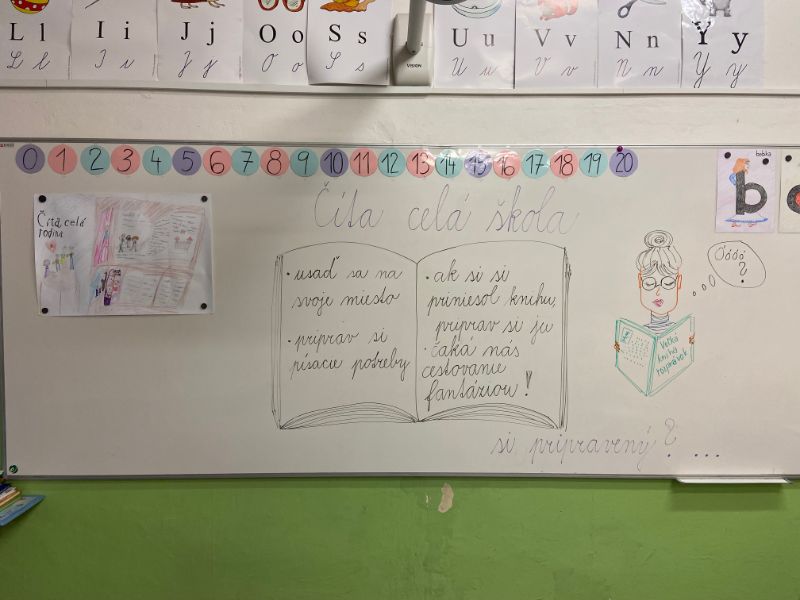 L l I i J j O o S s U u V v N n Y y
L l I i J j O o S s U u V v N n Y y
VISION
0 1 2 3 4 5 6 7 8 9 10 11 12 13 14 15 16 17 18 19 20
Číta celá
rodina
Číta celá škola
• usaď sa na
svoje miesto
• priprav si
písacie potreby
• ak si si
priniesol knihu,
priprav si ju
• čaká nás
cestovanie
fantáziou!
Óóóó
?
Veľká
kniha
rozprávok
babka
b
si pripravený? ...